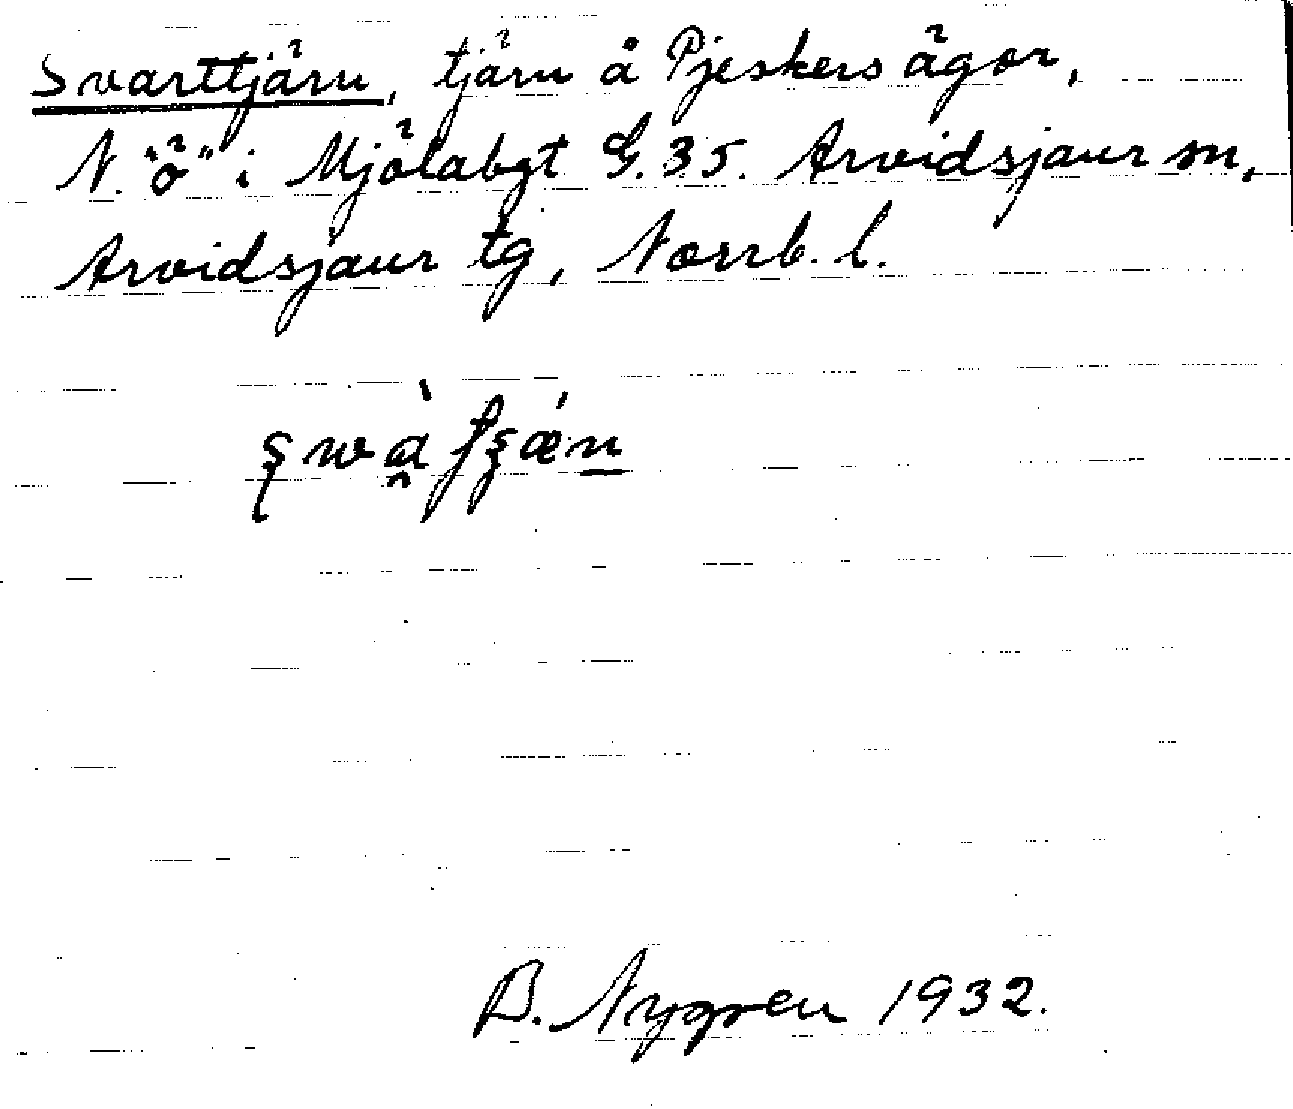 Svarttjärn, tjärn å Pjeskers ägor,
N. "ö" i Mjölabgt G.35. Arvidsjaur sn,
Arvidsjaur tg, Norrb. l.
B. Nygren 1932.